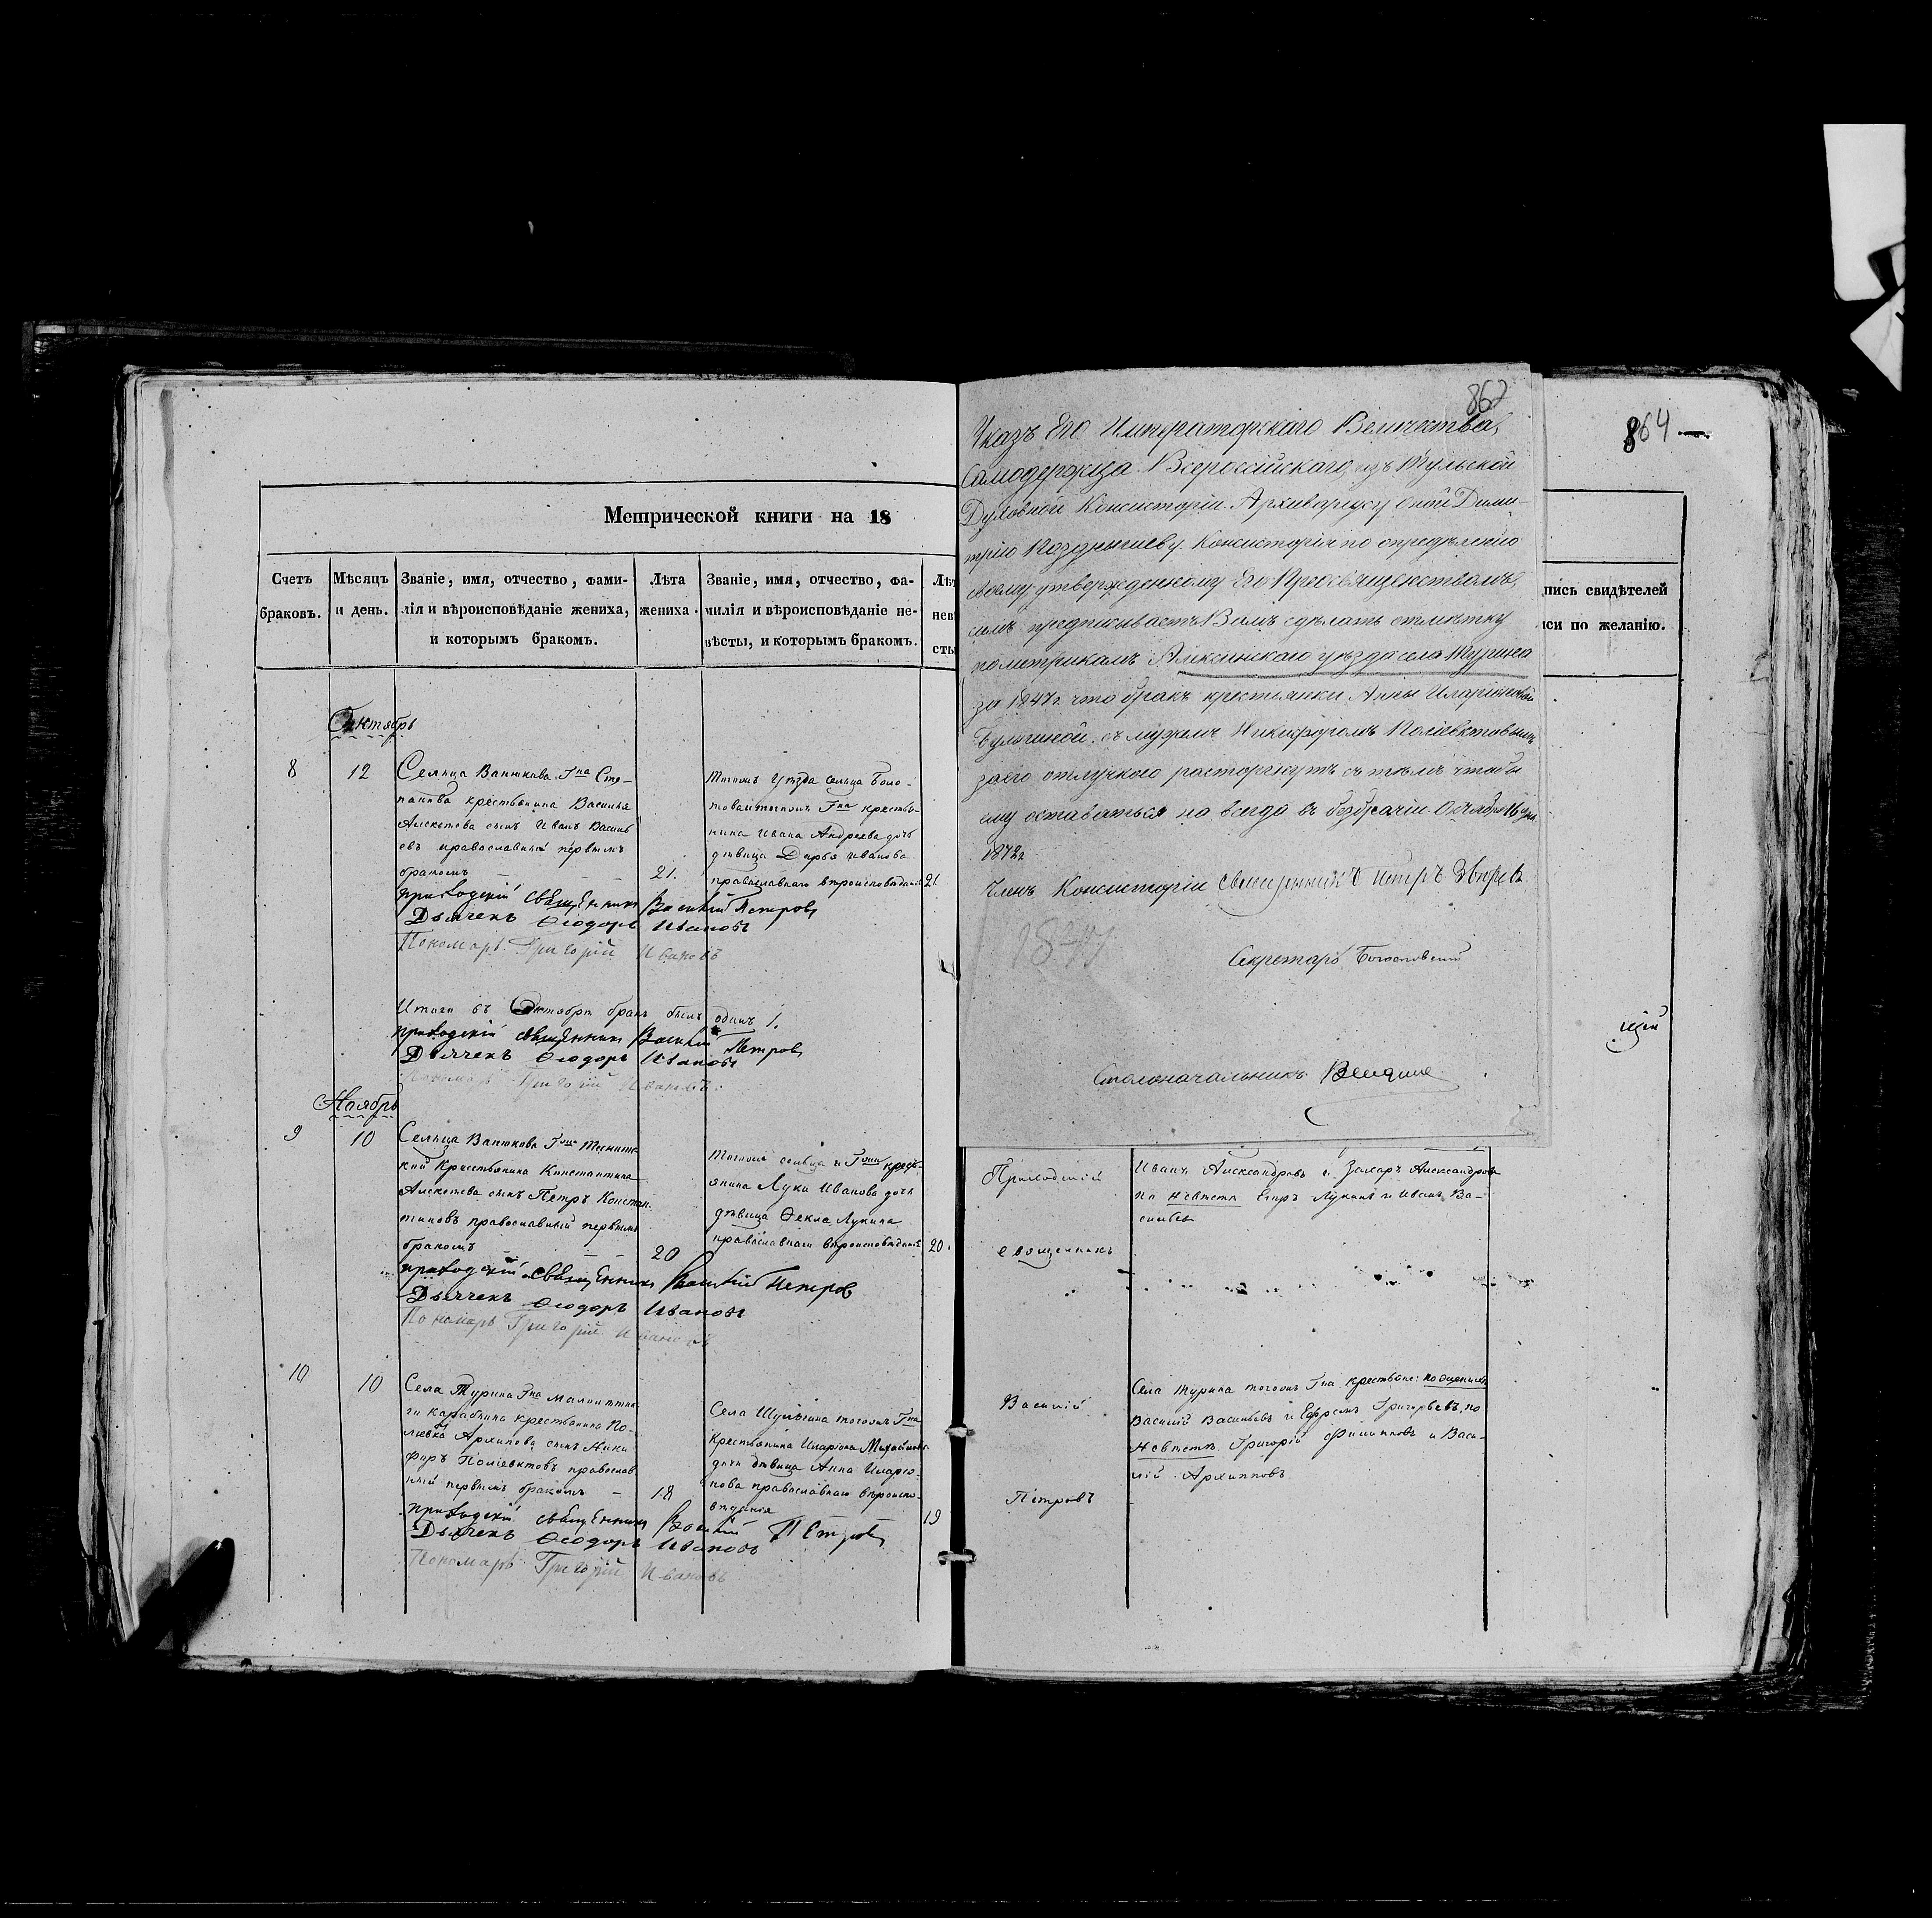 Метрической книги на 18
Счетъ браковъ.
Мѣсяцъ и день.
Званіе, имя, отчество, фами-
лія и вѣроисповѣданіе жениха,
и которымъ бракомъ.
Лѣта
жениха.
Званіе, имя, отчество, фа-
милія и вѣроисповѣданіе не-
вѣсты, и которымъ бракомъ.
Лѣт
нев
сты
Октябрь
8
12
Сельца Ванюкова Гна Сте-
панова крестьянина Василья
Алексѣева сынъ Иванъ Василь
евъ православный первымъ
бракомъ
21.
Уѣзда сельца Боло-
Гна крестья-
нина Ивана Андреева дочь
дѣвица Дарья Иванова
православнаго вѣроисповѣданія
21
приходскій священникъ Василій Петровъ
Дьячекъ Ѳеодоръ Ивановъ
Пономарь Григорій Ивановъ
Итого въ Октябрѣ бракъ былъ одинъ 1.
приходскій священникъ Василій Петровъ
Дьячекъ Ѳеодоръ Ивановъ
Пономарь Григорій Ивановъ
Ноябрь
9
10
Сельца Ванюкова
крестьянина Константина
Алексѣева сынъ Петръ Констан
тиновъ православный первымъ
бракомъ
20
сельца и Гжи кресть
янина Луки Иванова дочь
дѣвица Ѳекла Лукина
православнаго вѣроисповѣданія
20.
приходскій священникъ Василій Петровъ
Дьячекъ Ѳеодоръ Ивановъ
Пономарь Григорій Ивановъ
10
10
Села Турина Гна
крестьянина По-
ліевкта Архипова сынъ Ники
форъ Поліевктовъ православ
ный первымъ бракомъ
18
Села Шульгина тогожъ Гна
крестьянина Иларіона Михайлова
дочь дѣвица Анна Иларіо-
нова православнаго вѣроиспо-
вѣданія
19
приходскій священникъ Василій Петровъ
Дьячекъ Ѳеодоръ Ивановъ
Пономарь Григорій Ивановъ
862
Указъ Его Императорскаго Величества,
Самодержца Всероссійскаго, изъ Тульской
Духовной Консисторіи. Архиваріусу оной Дими-
трію Позднышеву. Консисторія по опредѣленію
своему утвержденному Его Преосвященствомъ,
симъ предписываетъ Вамъ сдѣлать отмѣтку
по метрикамъ Алексинскаго уѣзда села Турина
за 1847г. что бракъ крестьянки Анны Иларіоновой
Булыгиной съ мужемъ Никифоромъ Поліевктовымъ
за его отлучкою расторгнутъ съ тѣмъ чтобы
ему оставаться на всегда въ безбрачіи Октября 16 дня
1872г
Членъ Консисторіи священникъ Петръ
1847
Секретарь Богословскій
Столоначальникъ
864
пись свидѣтелей
си по желанію.
щій
Приходскій
священникъ
Василій
Петровъ
Иванъ Александровъ и Захаръ Александровъ
по невѣстѣ Егоръ Лукинъ и Иванъ Ва-
сильевъ
Села Турина тогожъ Гна крестьяне: по женихѣ
Василій Васильевъ и Ефремъ Григорьевъ, по
невѣстѣ Григорій Филипповъ и Васи-
лій Архиповъ